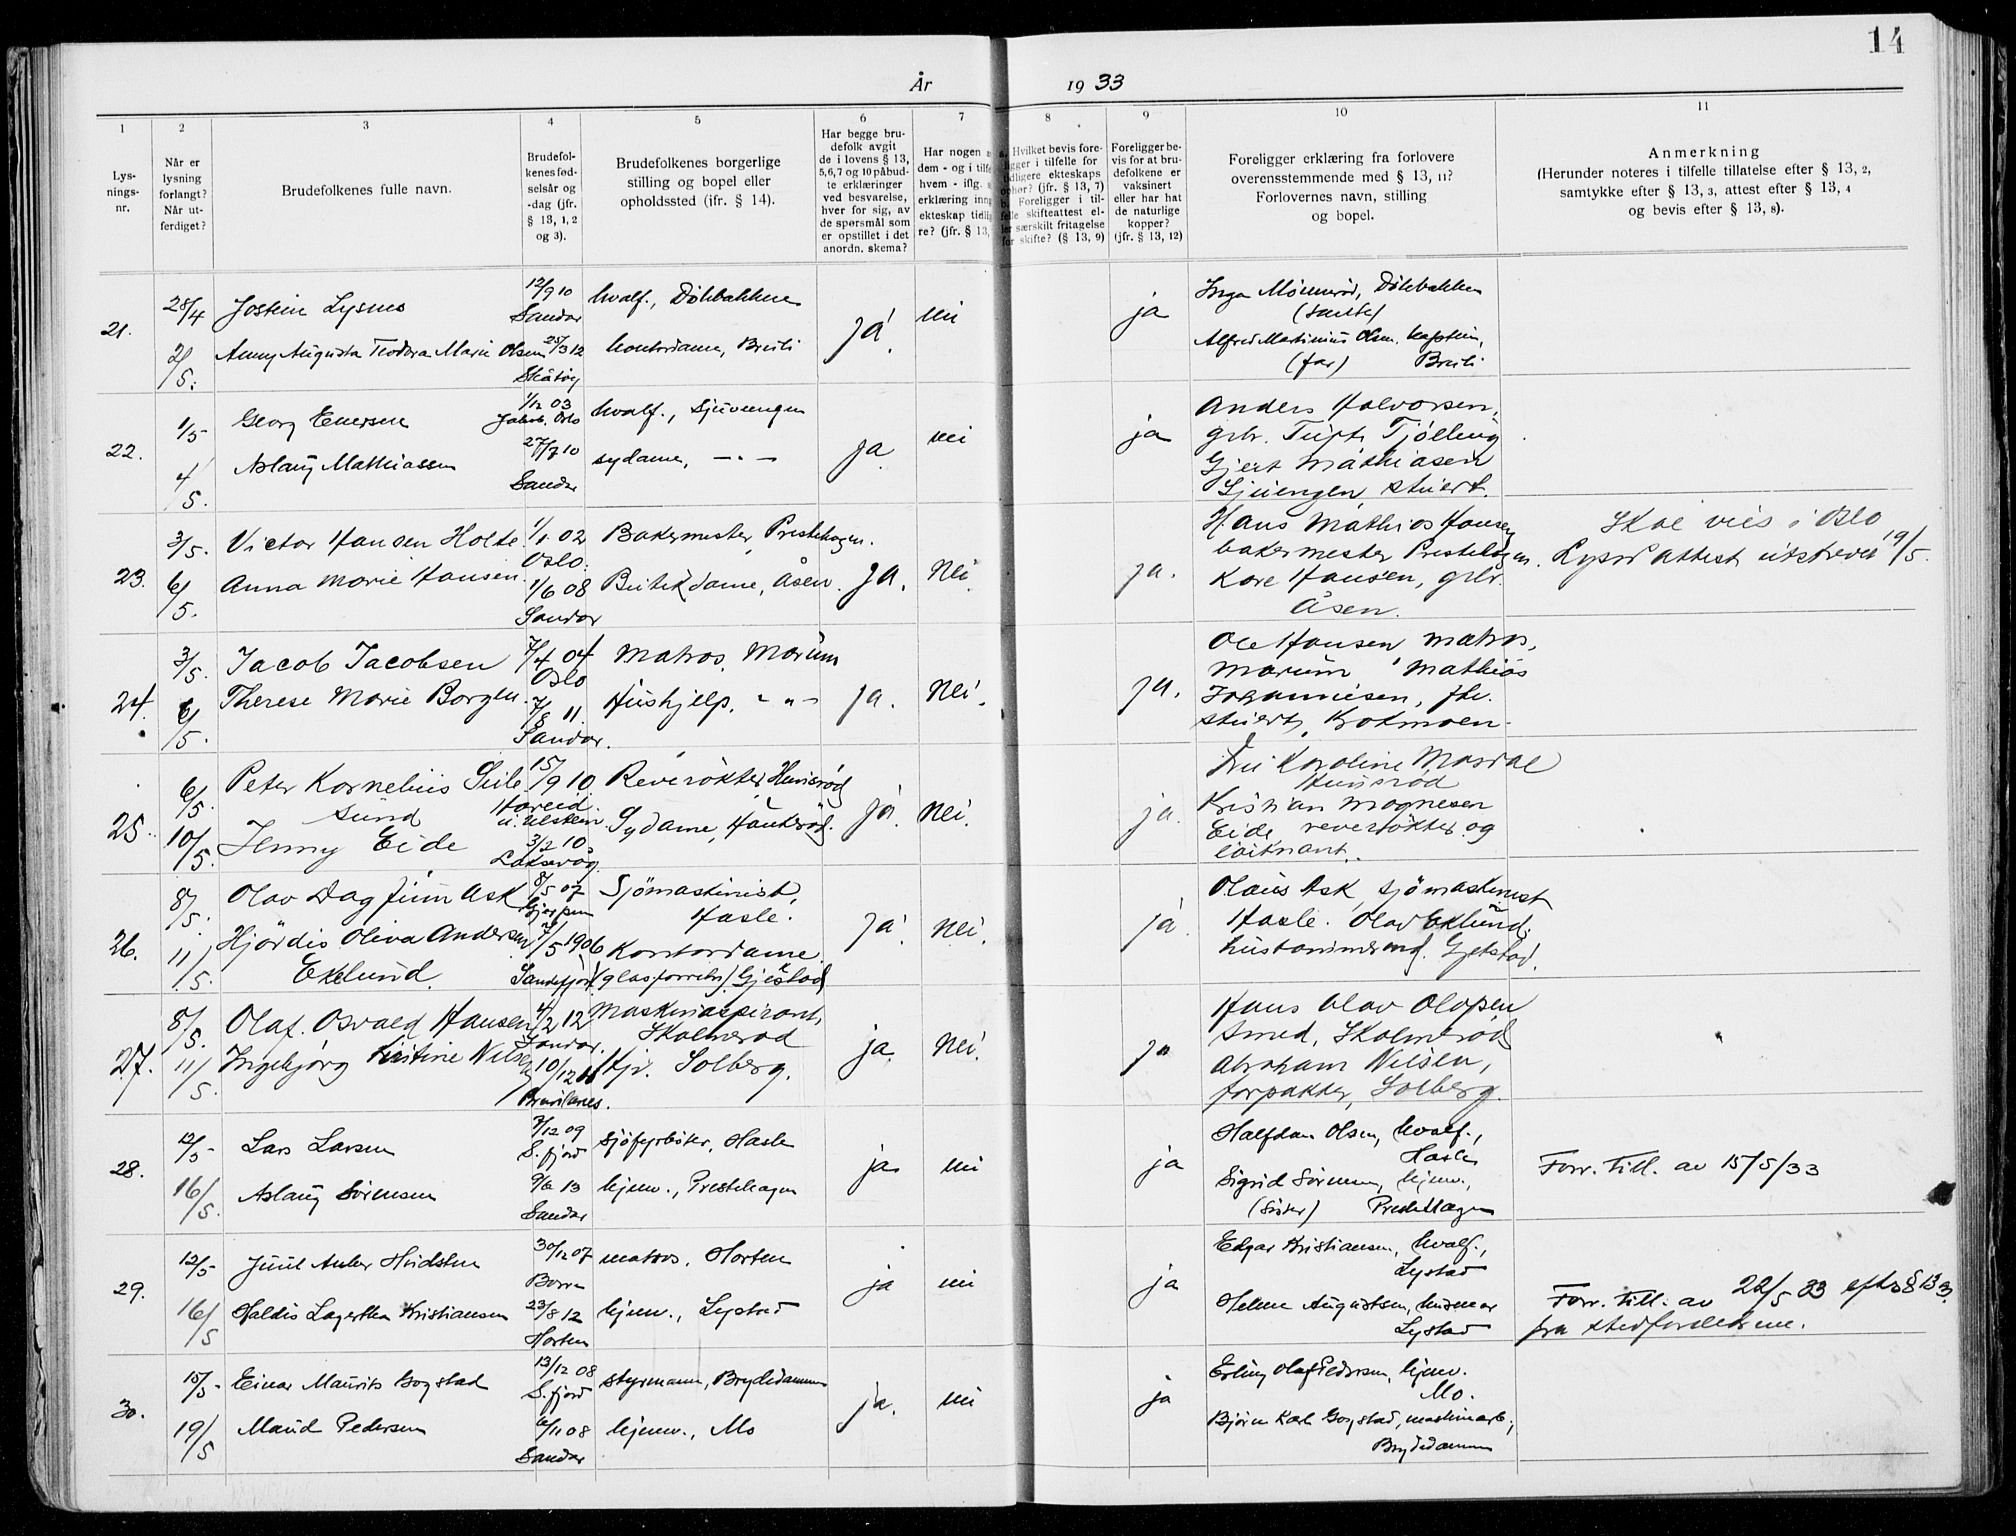 14
År 1933
1 2 3 4 5 6 7 8 9 10 11
Lys-
nings-
nr.
Når er
lysning
forlangt?
Når ut-
ferdiget?
Brudefolkenes fulle navn.
Brudefol-
kenes fød-
selsår og
-dag (jfr.
§ 13, 1, 2
og 3).
Brudefolkenes borgerlige
stilling og bopel eller
opholdssted (ifr. § 14).
Har begge bru-
defolk avgit
de i lovens § 13,
5,6,7 og 10 påbud-
te erklæringer
ved besvarelse,
hver for sig, av
de spørsmål som
er opstillet i det
anordn. skema?
Har nogen
dem - og i tilf
hvem - iflg.
erklæring inn
ekteskap tidli
re? (jfr. § 13,
Hvilket bevis fore-
ligger i tilfelle for
tidligere ekteskaps
ophør? (jfr. § 13, 7)
b. Foreligger i til-
felle skifteattest el-
ler særskilt fritagelse
for skifte? (§ 13, 9)
Foreligger be-
vis for at bru-
defolkene er
vaksinert
eller har hat
de naturlige
kopper?
(jfr. § 13, 12)
Foreligger erklæring fra forlovere
overensstemmende med § 13, 11?
Forlovernes navn, stilling
og bopel.
Anmerkning
(Herunder noteres i tilfelle tillatelse efter § 13, 2,
samtykke efter § 13, 3, attest efter § 13, 4
og bevis efter § 13, 8).
21.
28/4
2/5.
Jostein Lysnes
Anny Augusta Teodora Marie Olsen
12/9 10
Sandar
25/3 12
Skåtøy
hvalf., Dölebakken
kontordame, Breili
ja
nei
ja
Inga Mønnerød, Dölebakken
Alfred Martinius Olsen, kaptein,
(far) Breili
22.
1/5
4/5.
Georg Enersen
Aslaug Mathiassen
1/12 03
Jakob, Oslo
27/7 10
Sandar
hvalf., Sjuvengen
sydame, -"-
ja
nei
ja
Anders Halvorsen,
grbr. Tuft, Tjölling
Gjert Mathiasen
stuert.
23.
3/5.
6/5.
Victor Hansen Holte
Anna Marie Hansen.
1/1 02
Oslo.
1/6 08
Sandar
Bakermester, Prestehagen.
Butikkdame, Åsen.
ja.
Nei.
ja.
Hans Mathias Hansen
bakermester Prestehagen.
Kåre Hansen, grbr.
Åsen.
Skal vies i Oslo
Lysn. attest utskrevet 19/5.
24.
3/5.
6/5.
Jacob Jacobsen
Therese Marie Borgen.
7/4 04
Oslo
7/8 11.
Sandar.
Matros, Marum
Hushjelp, - " -
ja.
Nei.
ja.
Ole Hansen matros,
Marum, Mathias
Johannesen, fhv.
stuert, Krokmoen.
25.
6/5.
10/5.
Peter Kornelius Seile
sund
Jenny Eide
15/9 10.
Hareid
u. Ulstein
3/2 10
Laksevåg.
Reverökter, Hunsröd
Sydame, Haukeröd.
ja.
Nei.
ja.
Fru Karoline Masdal
Hunsröd
Kristian Magnesen
Eide, reverökter og
löitnant.
26.
8/5.
11/5.
Olav Dagfinn Ask
Hjördis Oliva Andersen
Eklund.
8/5 07
Gjerpen
7/5 1906
Sandefjord
Sjömaskinist,
Hasle.
Kontordame.
(glasforretn.) Gjekstad
ja.
Nei.
ja.
Olaus Ask, sjömaskinist
Hasle. Olav Eklund,
27.
8/5.
11/5.
Olaf Osvald Hansen
Ingebjørg Kristine Nilsen
4/2 12
Sandar.
10/12 11
Brunlanes.
Maskinaspirant,
Skolmerod
Hj. Solberg.
ja.
Nei.
ja
Hans Olav Olafsen
smed, Skolmeröd
Abraham Nilsen,
forpakter, Solberg.
28.
12/5
16/5.
Lars Larsen
Aslaug Sörensen
7/12 09
S.fjord
9/6 13
Sandar
sjöfyrböter, Hasle
hjemv., Prestehagen
ja
nei
ja
Halfdan Olsen, hvalf.,
Hasle
Sigrid Sörensen, hjemv.,
(söster) Prestehagen
Forr. till. av 15/5/33
29.
12/5
16/5
Juul Anker Hvidsten
Haldis Lagertha Kristiansen
30/12 07
Borre
23/8 12
Horten
matros, Horten
hjemv., Lystad
ja
nei
ja
Edgar Kristiansen, hvalf.,
Lystad
Helene Augustsen, husmor
Lystad
Forr. till. av 22/5 33 efter § 13 3.
fra stedforeldrene.
30.
15/5
19/5
Einar Maurits Gogstad
Maud Pedersen
13/12 08
S.fjord
6/11 08
Sandar
styrmann, Brydedammen
hjemv., Mo
ja.
nei
ja
Erling Olaf Pedersen, hjemv.
Mo.
Björn Karl Gogstad, maskinarb.,
Brydedammen